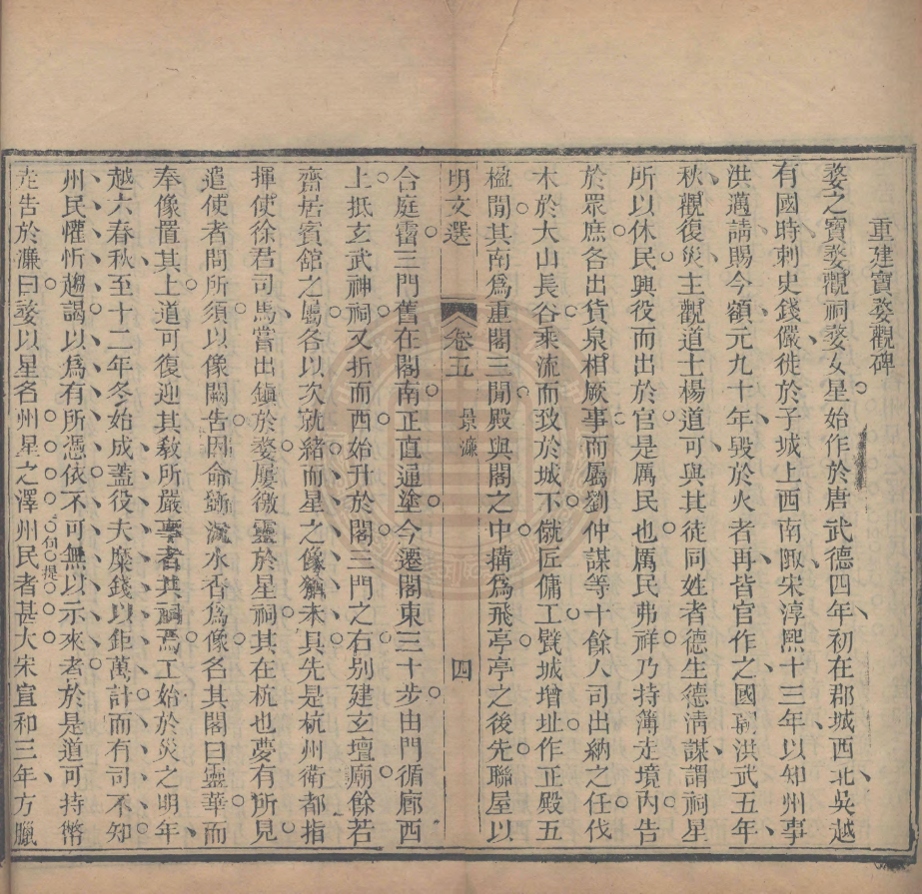 重建寶婺觀碑
婺之寶婺觀祠婺女星始作於唐武德四年初在郡城西北吳越
有國時刺史錢儼徙於子城上西南陬宋淳熙十三年以知州事
洪邁請賜今額元九十年毀於火者再皆官作之國朝洪武五年
秋觀復災主觀道士楊道可與其徒同姓者德生德清謀謂祠星
所以休民興役而出於官是厲民也厲民弗祥乃持簿走境內告
於眾庶各出貨泉相厥事而屬劉仲謀等十餘人司出納之任伐
木於大山長谷乘流而致於城下僦匠傭工甓城增址作正殿五
楹間其南為重閣三間殿與閣之中搆為飛亭亭之後先聯屋以
明文選 卷五 景濂 四
合庭霤三門舊在閣南正直通塗今遷閣東三十步由門循廊西
上抵玄武神祠又折而西始升於閣三門之右别建玄壇廟餘若
齋居賓舘之屬各以次就緒而星之像猶未具先是杭州衛都指
揮使徐君司馬嘗出鎮於婺屢徼靈於星祠其在杭也夢有所見
遣使者問所須以像闕告因命斵沉水香為像名其閣曰靈華而
奉像置其上道可復迎其敎所嚴事者共祠焉工始於災之明年
越六春秋至十二年冬始成蓋役夫糜錢以鉅萬計而有司不知
州民懽忻趨謁以為有所憑依不可無以示來者於是道可持幣
走告於濂曰婺以星名州星之澤州民者甚大宋宣和三年方臘
何提